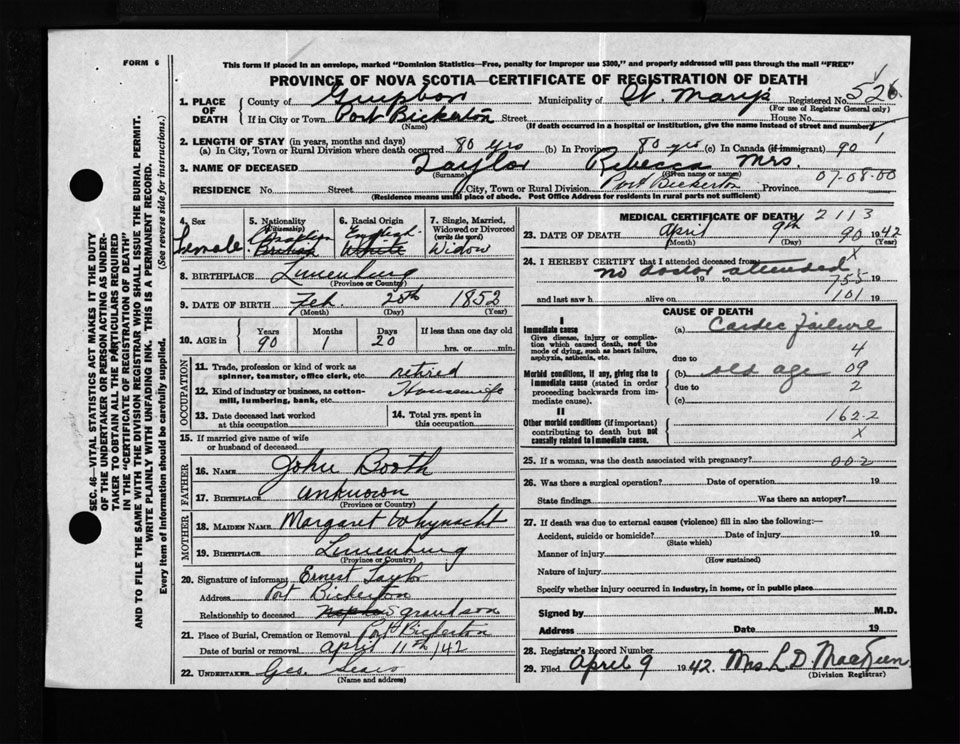 FORM 6
This form if placed in an envelope, marked "Dominion Statistics—Free, penalty for improper use $300," and properly addressed will pass through the mail "FREE"
PROVINCE OF NOVA SCOTIA—CERTIFICATE OF REGISTRATION OF DEATH
SEC. 46—VITAL STATISTICS ACT MAKES IT THE DUTY
OF THE UNDERTAKER OR PERSON ACTING AS UNDER-
TAKER TO OBTAIN ALL THE PARTICULARS REQUIRED
IN THE "CERTIFICATE OF REGISTRATION OF DEATH"
AND TO FILE THE SAME WITH THE DIVISION REGISTRAR WHO SHALL ISSUE THE BURIAL PERMIT.
WRITE PLAINLY WITH UNFADING INK. THIS IS A PERMANENT RECORD.
Every item of Information should be carefully supplied. (See reverse side for instructions.)
1. PLACE OF DEATH County of Municipality of St. Mary's Registered No. 526
(For use of Registrar General only)
If in City or Town Port Bickerton Street House No.
(Name) (If death occurred in a hospital or institution, give the name instead of street and number)
2. LENGTH OF STAY (in years, months and days)
(a) In City, Town or Rural Division where death occurred 80 yrs (b) In Province 80 yrs (c) In Canada (if immigrant) 90 1
3. NAME OF DECEASED Taylor Rebecca Mrs.
(Surname) (Given name or names)
RESIDENCE No. Street City, Town or Rural Division Port Bickerton Province 07-08-00
(Residence means usual place of abode. Post Office Address for residents in rural parts not sufficient)
4. Sex Female
5. Nationality (Citizenship) British
6. Racial Origin English White
7. Single, Married, Widowed or Divorced (write the word) Widow
8. BIRTHPLACE Lunenburg
(Province or Country)
9. DATE OF BIRTH Feb. 20th 1852
(Month) (Day) (Year)
10. AGE in Years 90 Months 1 Days 20 If less than one day old hrs. or min.
OCCUPATION
11. Trade, profession or kind of work as spinner, teamster, office clerk, etc. retired
12. Kind of industry or business, as cotton-mill, lumbering, bank, etc. Housewife
13. Date deceased last worked at this occupation
14. Total yrs. spent in this occupation
15. If married give name of wife or husband of deceased
FATHER
16. NAME John Booth
17. BIRTHPLACE unknown
(Province or Country)
MOTHER
18. MAIDEN NAME Margaret Whynacht
19. BIRTHPLACE Lunenburg
(Province or Country)
20. Signature of informant Ernest Taylor
Address Port Bickerton
Relationship to deceased grandson
21. Place of Burial, Cremation or Removal Port Bickerton
Date of burial or removal April 11th/42
22. UNDERTAKER Geo. Sears
(Name and address)
MEDICAL CERTIFICATE OF DEATH 2113
23. DATE OF DEATH April 9th 90 1942
(Month) (Day) (Year)
24. I HEREBY CERTIFY that I attended deceased from x
no doctor attended 19 to 755 19
and last saw h alive on 101 19
CAUSE OF DEATH
I
Immediate cause (a) Cardec failure
Give disease, injury or complication which caused death, not the mode of dying, such as heart failure, asphyxia, asthenia, etc.
due to 4
Morbid conditions, if any, giving rise to immediate cause (stated in order proceeding backwards from immediate cause). (b) old age 09
due to 2
(c)
II
Other morbid conditions (if important) contributing to death but not causally related to immediate cause. 162.2
x
25. If a woman, was the death associated with pregnancy? 002
26. Was there a surgical operation? Date of operation 19
State findings Was there an autopsy?
27. If death was due to external causes (violence) fill in also the following:—
Accident, suicide or homicide? Date of injury 19
(State which)
Manner of injury
(How sustained)
Nature of injury
Specify whether injury occurred in industry, in home, or in public place
Signed by M.D.
Address Date 19
28. Registrar's Record Number
29. Filed April 9 1942. Mrs L. D. MacKeen
(Division Registrar)